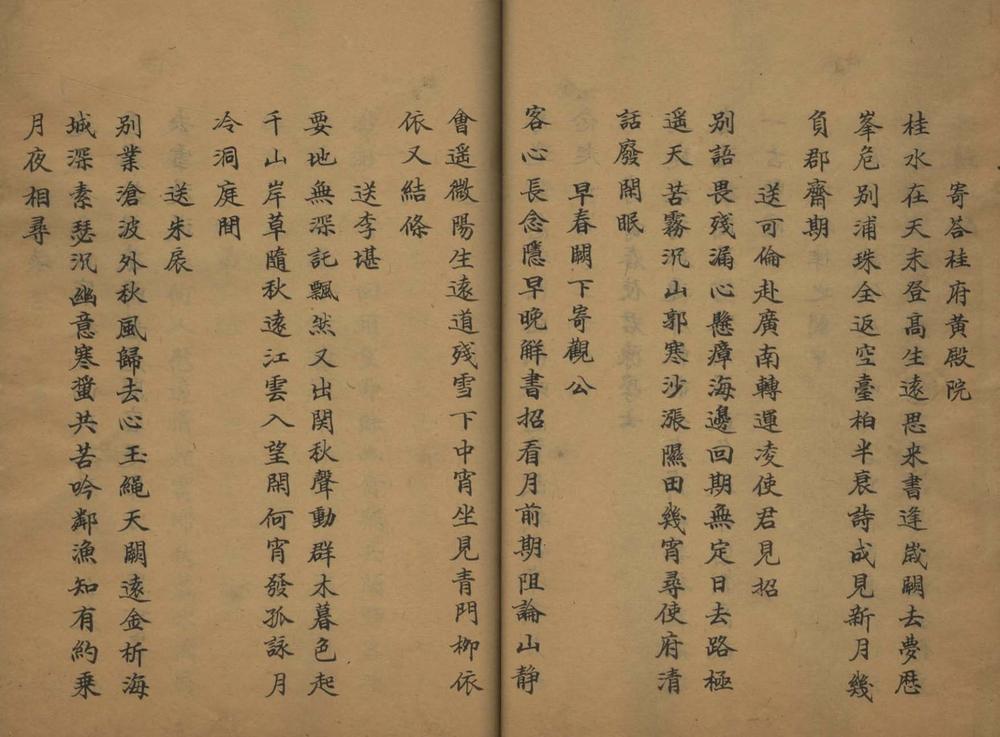 寄荅桂府黄殿院
桂水在天末登高生遠思来書逢歳闕去夢歴
峯危别浦珠全返空臺柏半衰詩成見新月幾
負郡齋期
送可倫赴廣南轉運凌使君見招
别語畏残漏心懸瘴海邊回期無定日去路極
遥天苦霧沉山郭寒沙漲隰田幾宵尋使府清
話廢閑眠
早春闕下寄觀公
客心長念隱早晚觧書招看月前期阻論山静
會遥微陽生遠道残雪下中宵坐見青門栁依
依又結條
送李堪
要地無深託飄然又出関秋聲動群木暮色起
千山岸草隨秋遠江雲入望閑何宵發孤詠月
冷洞庭間
送朱扆
别業滄波外秋風歸去心玉繩天闕遠金析海
城深素瑟沉幽意寒螿共苦吟鄰漁知有約乗
月夜相尋